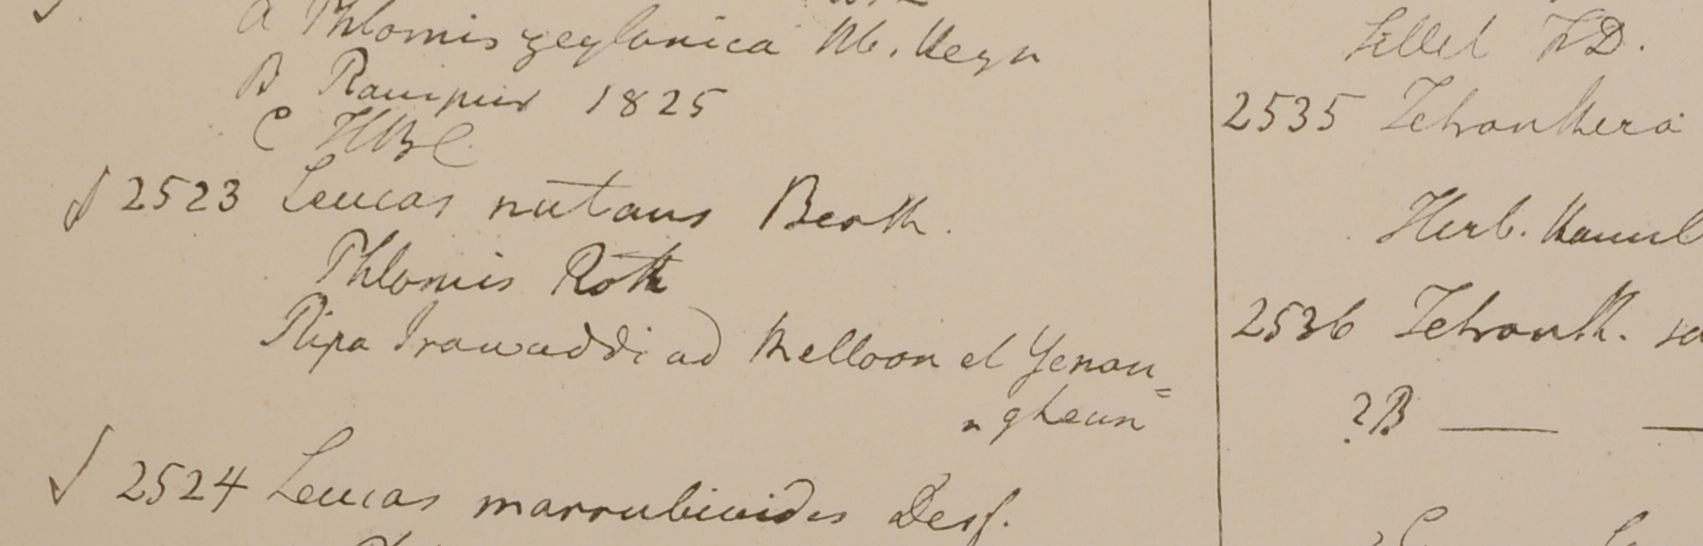 a Phlomis zeylanica Hb. Heyn
B Rampur 1825
C HBC
2523 Leucas nutans Benth.
Phlomis Roth
Ripa Irawaddi ad Melloon et Yenan=
gheun
2524 Leucas marrubioides Desf.
HD.
2535 Tetranthera
Herb. Hamil
2536 Tetranth.
?B — —